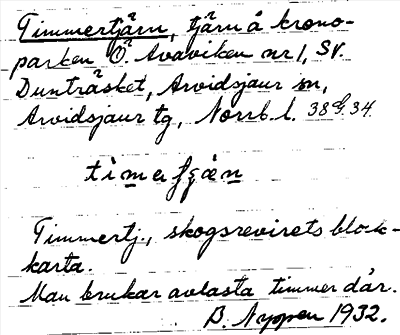 Timmertjärn, tjärn å krono-
parken Ö. Avaviken nr 1, SV.
Dunträsket, Arvidsjaur sn,
Arvidsjaur tg, Norrb. l. 38 G. 34
Timmertj., skogsrevirets block-
karta.
Man brukar avlasta timmer där.
B. Nyppen 1932.